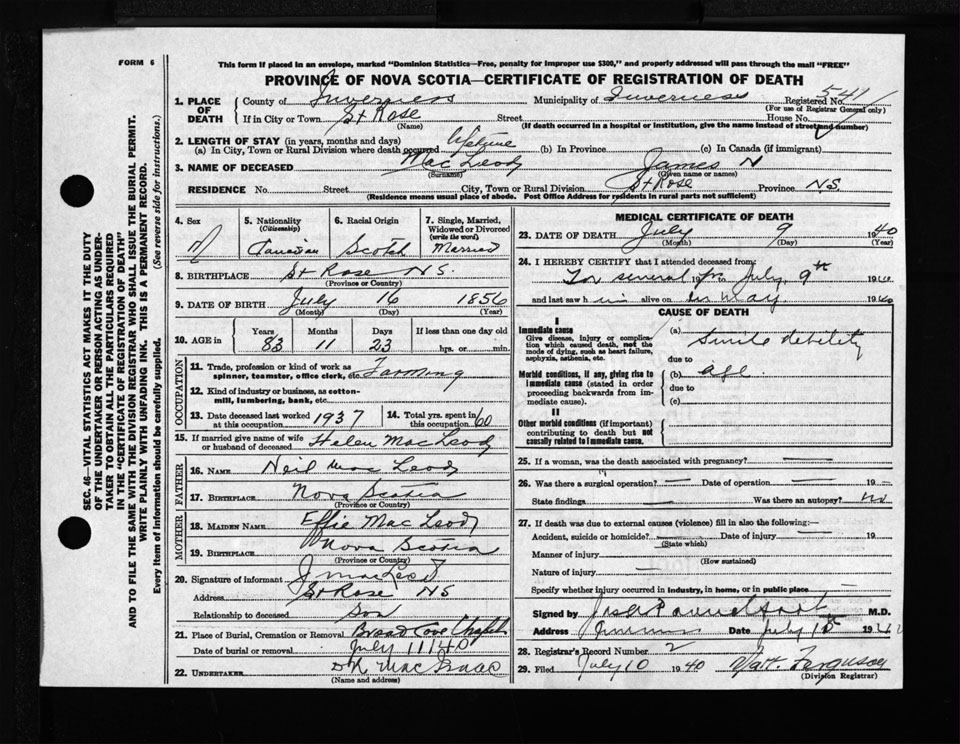 FORM 6
This form if placed in an envelope, marked "Dominion Statistics—Free, penalty for improper use $300," and properly addressed will pass through the mail "FREE"
PROVINCE OF NOVA SCOTIA—CERTIFICATE OF REGISTRATION OF DEATH
SEC. 46—VITAL STATISTICS ACT MAKES IT THE DUTY
OF THE UNDERTAKER OR PERSON ACTING AS UNDER-
TAKER TO OBTAIN ALL THE PARTICULARS REQUIRED
IN THE "CERTIFICATE OF REGISTRATION OF DEATH"
AND TO FILE THE SAME WITH THE DIVISION REGISTRAR WHO SHALL ISSUE THE BURIAL PERMIT.
WRITE PLAINLY WITH UNFADING INK. THIS IS A PERMANENT RECORD.
Every Item of Information should be carefully supplied. (See reverse side for instructions.)
1. PLACE OF DEATH County of Inverness Municipality of Inverness Registered No. 541
(For use of Registrar General only)
If in City or Town St Rose Street House No.
(Name) (If death occurred in a hospital or institution, give the name instead of street and number)
2. LENGTH OF STAY (in years, months and days)
(a) In City, Town or Rural Division where death occurred lifetime (b) In Province (c) In Canada (if immigrant)
3. NAME OF DECEASED Mac Leod James N
(Surname) (Given name or names)
RESIDENCE No. Street City, Town or Rural Division St Rose Province N.S.
(Residence means usual place of abode. Post Office Address for residents in rural parts not sufficient)
4. Sex M
5. Nationality (Citizenship) Canadian
6. Racial Origin Scotch
7. Single, Married, Widowed or Divorced (write the word) Married
8. BIRTHPLACE St Rose N.S.
(Province or Country)
9. DATE OF BIRTH July 16 1856
(Month) (Day) (Year)
10. AGE in Years 83 Months 11 Days 23 If less than one day old hrs. or min.
OCCUPATION
11. Trade, profession or kind of work as spinner, teamster, office clerk, etc. Farming
12. Kind of industry or business, as cotton-mill, lumbering, bank, etc.
13. Date deceased last worked at this occupation 1937
14. Total yrs. spent in this occupation 60
15. If married give name of wife or husband of deceased Helen Mac Leod
FATHER
16. NAME Neil Mac Leod
17. BIRTHPLACE Nova Scotia
(Province or Country)
MOTHER
18. MAIDEN NAME Effie Mac Leod
19. BIRTHPLACE Nova Scotia
(Province or Country)
20. Signature of informant J MacLeod
Address St Rose N S
Relationship to deceased Son
21. Place of Burial, Cremation or Removal Broad Cove Chapel
Date of burial or removal July 11/40
22. UNDERTAKER Mac Isaac
(Name and address)
MEDICAL CERTIFICATE OF DEATH
23. DATE OF DEATH July 9 1940
(Month) (Day) (Year)
24. I HEREBY CERTIFY that I attended deceased from:
For several yrs to July 9th 1940
and last saw him alive on in May 1940
CAUSE OF DEATH
I
Immediate cause
Give disease, injury or complication which caused death, not the mode of dying, such as heart failure, asphyxia, asthenia, etc.
(a) Senile debility
due to
Morbid conditions, if any, giving rise to immediate cause (stated in order proceeding backwards from immediate cause).
(b) age
due to
(c)
II
Other morbid conditions (if important) contributing to death but not causally related to immediate cause.
25. If a woman, was the death associated with pregnancy? —
26. Was there a surgical operation? — Date of operation — 19 —
State findings — Was there an autopsy? no
27. If death was due to external causes (violence) fill in also the following:—
Accident, suicide or homicide? — Date of injury — 19
(State which)
Manner of injury —
(How sustained)
Nature of injury —
Specify whether injury occurred in industry, in home, or in public place
Signed by M.D.
Address Date July 10th 19
28. Registrar's Record Number 2
29. Filed July 10 1940 Ferguson
(Division Registrar)